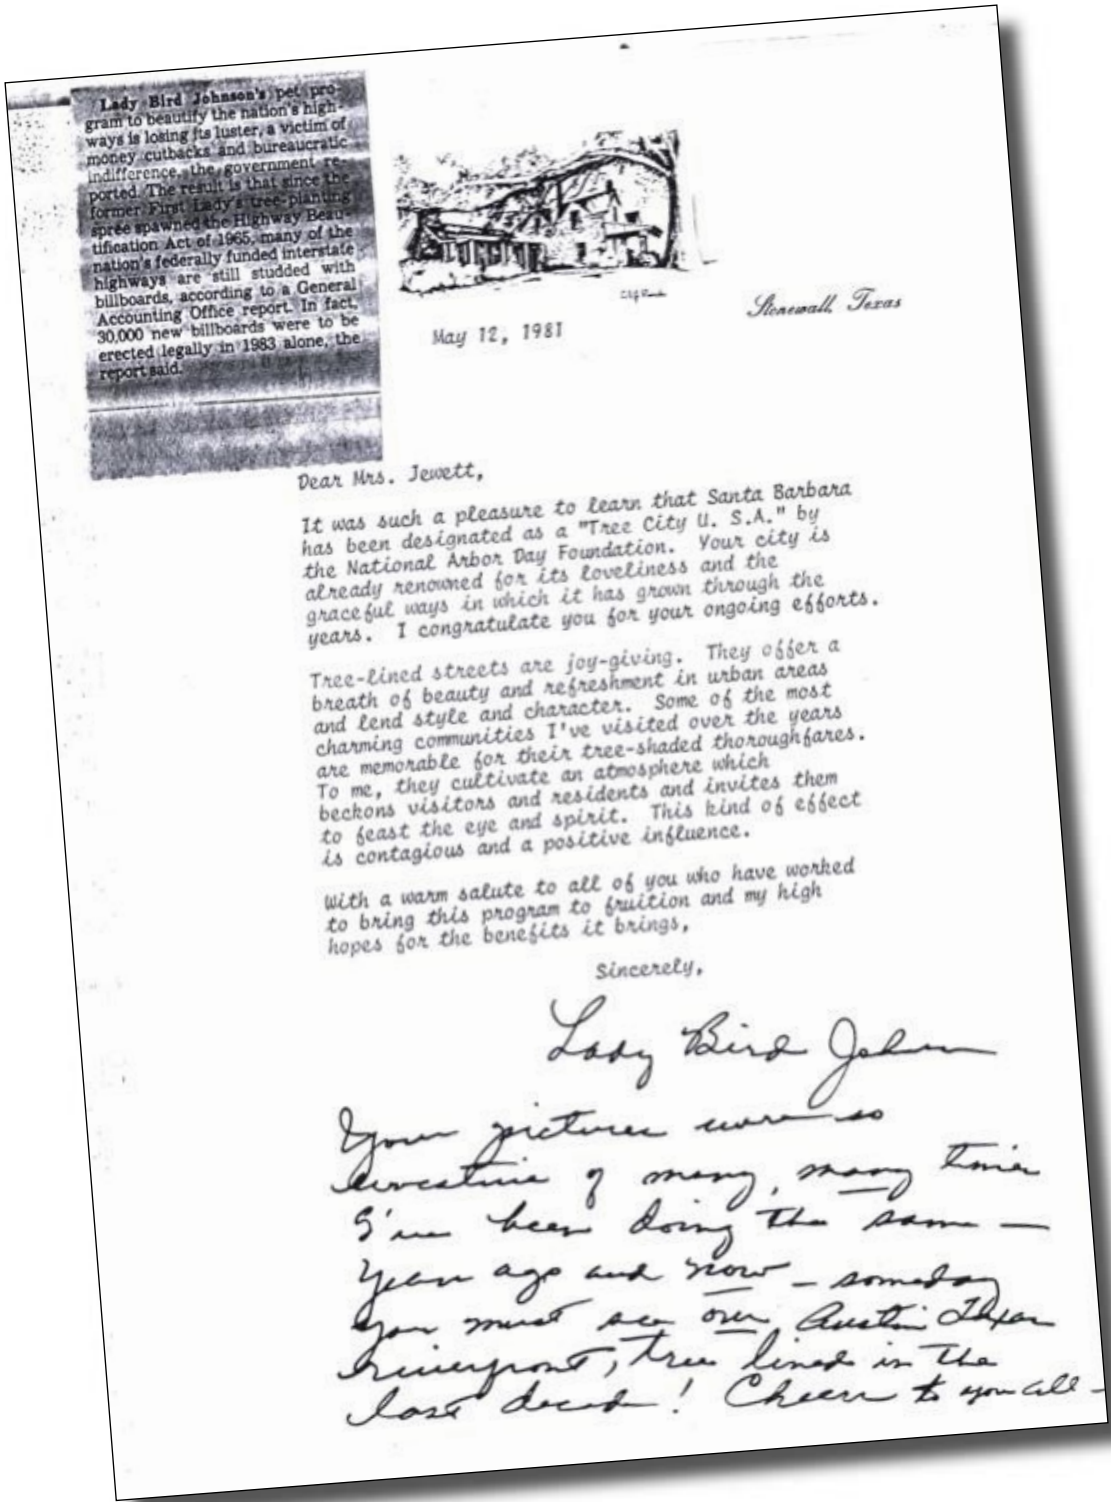 Lady Bird Johnson's pet pro-
gram to beautify the nation's high-
ways is losing its luster, a victim of
money cutbacks and bureaucratic
indifference, the government re-
ported. The result is that since the
former First Lady's tree-planting
spree spawned the Highway Beau-
tification Act of 1965, many of the
nation's federally funded interstate
highways are still studded with
billboards, according to a General
Accounting Office report. In fact,
30,000 new billboards were to be
erected legally in 1983 alone, the
report said.
Stonewall, Texas
May 12, 1981
Dear Mrs. Jewett,
It was such a pleasure to learn that Santa Barbara
has been designated as a "Tree City U. S.A." by
the National Arbor Day Foundation. Your city is
already renowned for its loveliness and the
graceful ways in which it has grown through the
years. I congratulate you for your ongoing efforts.
Tree-lined streets are joy-giving. They offer a
breath of beauty and refreshment in urban areas
and lend style and character. Some of the most
charming communities I've visited over the years
are memorable for their tree-shaded thoroughfares.
To me, they cultivate an atmosphere which
beckons visitors and residents and invites them
to feast the eye and spirit. This kind of effect
is contagious and a positive influence.
With a warm salute to all of you who have worked
to bring this program to fruition and my high
hopes for the benefits it brings,
Sincerely,
Lady Bird Johnson
Your pictures were so
evocative of many, many times
I've been doing the same —
years ago and now — someday
you must see our Austin Texas
riverfront, tree lined in the
last decade! Cheers to you all —